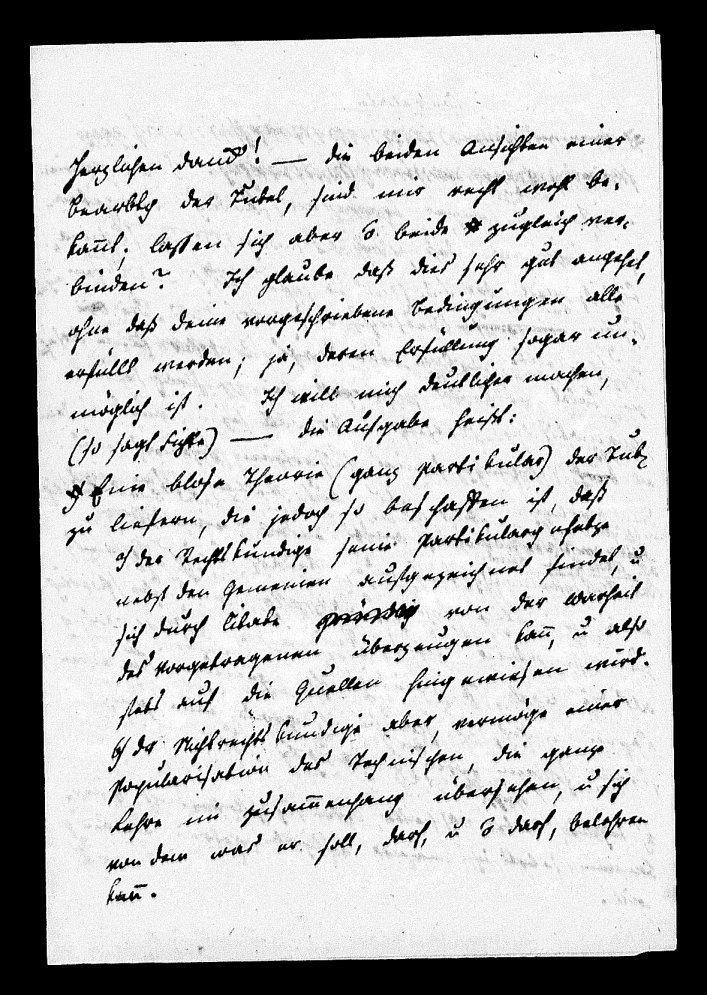 Herzlichen Dank! — die beiden Ansichten einer
Bearbtg der Tutel, sind mir recht wohl be-
kañt; laßen sich aber beide zugleich ver-
binden? Ich glaube daß dies sehr gut angehet,
ohne daß deine vorgeschriebene Bedingungen alle
erfüllt werden; ja, deren Erfüllung sogar un-
möglich ist. Ich will mich deutlicher machen,
(so sagt Fichte) — die Aufgabe heißt:
Eine blose Theorie (ganz partikular) der Tutel
zu liefern, die jedoch so beschaffen ist, daß
a) der Rechtskundige seine Partikulargesetze
nebst den Gemeinen aufgezeichnet findet, u
sich durch Citate von der Warheit
des vorgetragenen überzeugen kañ, u also
stets auf die Quellen hingewiesen wird.
b) der Nichtrechtskundige aber, vermöge einer
Popularisation des Technischen, die ganze
Lehre im Zusam̃enhang übersehen, u sich
von dem was er soll, darf, u darf, belehren
kañ.